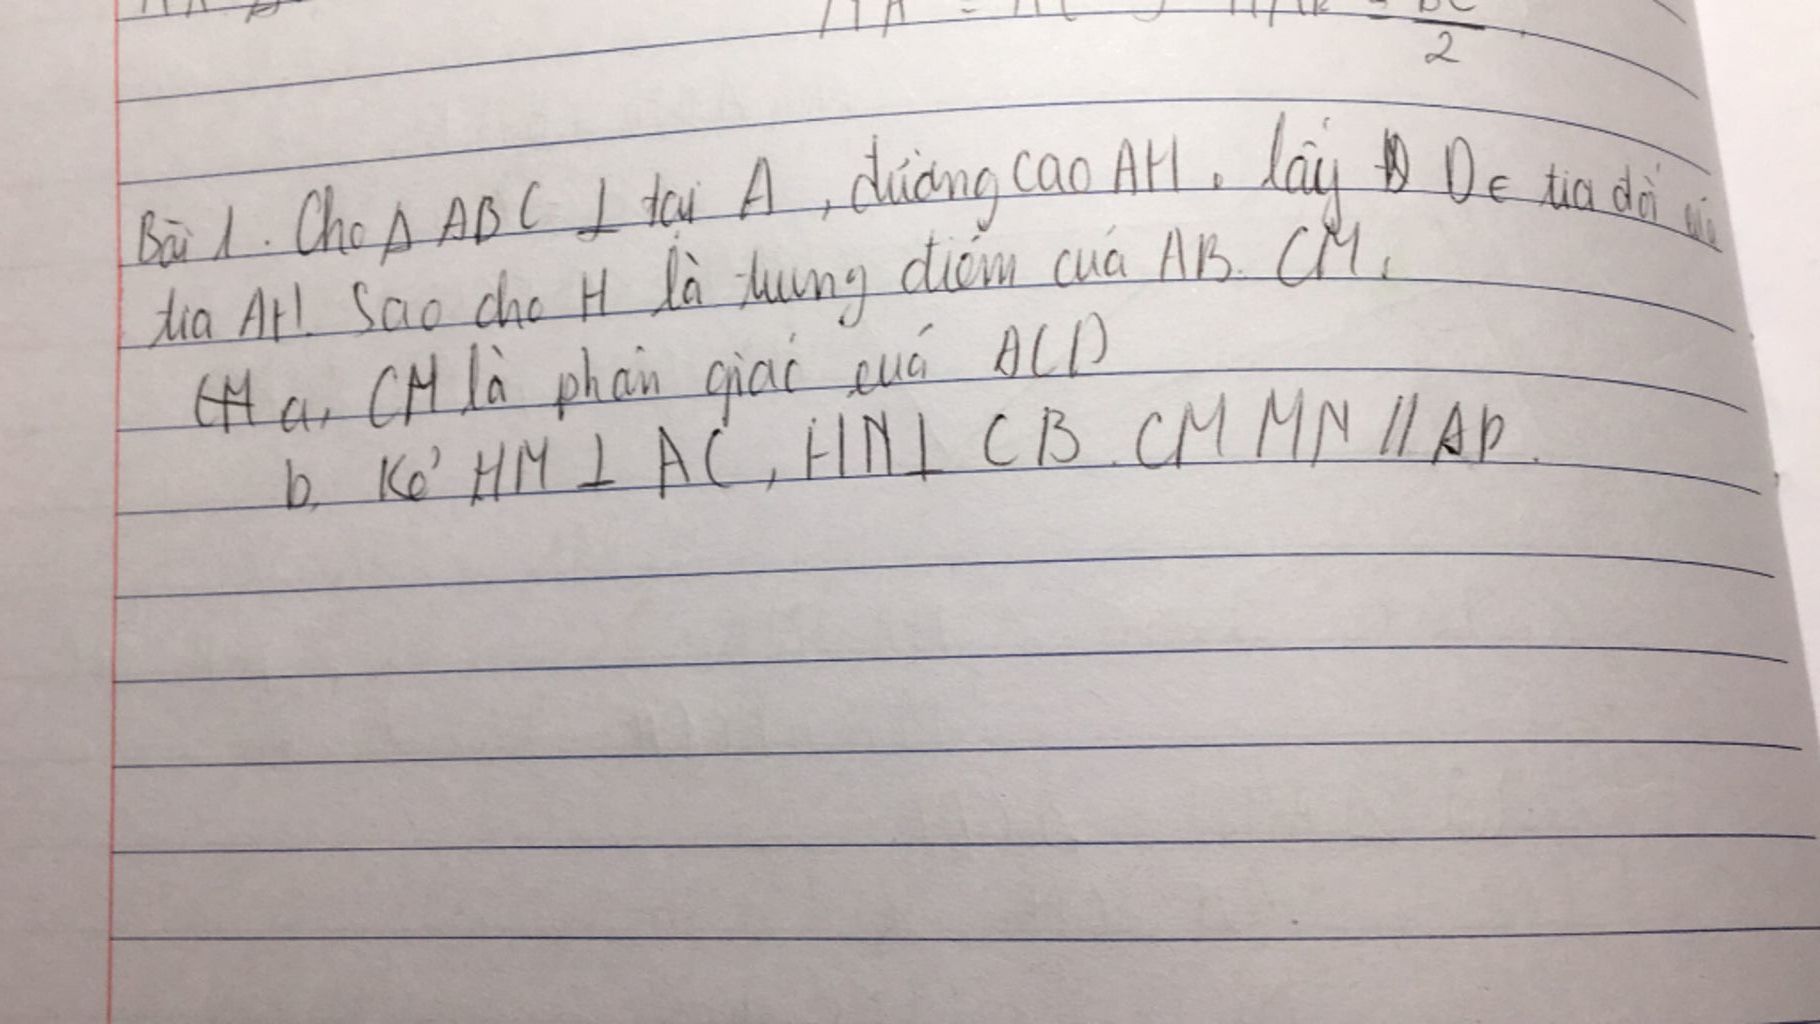 2
Bài 1. Cho Δ ABC ⊥ tại A, đường cao AH. lấy D ∈ tia đối
tia AH sao cho H là trung điểm của AB. CM:
a, CM là phân giác của ACD
b, Kẻ HM ⊥ AC, HN ⊥ CB. CM MN // AD.